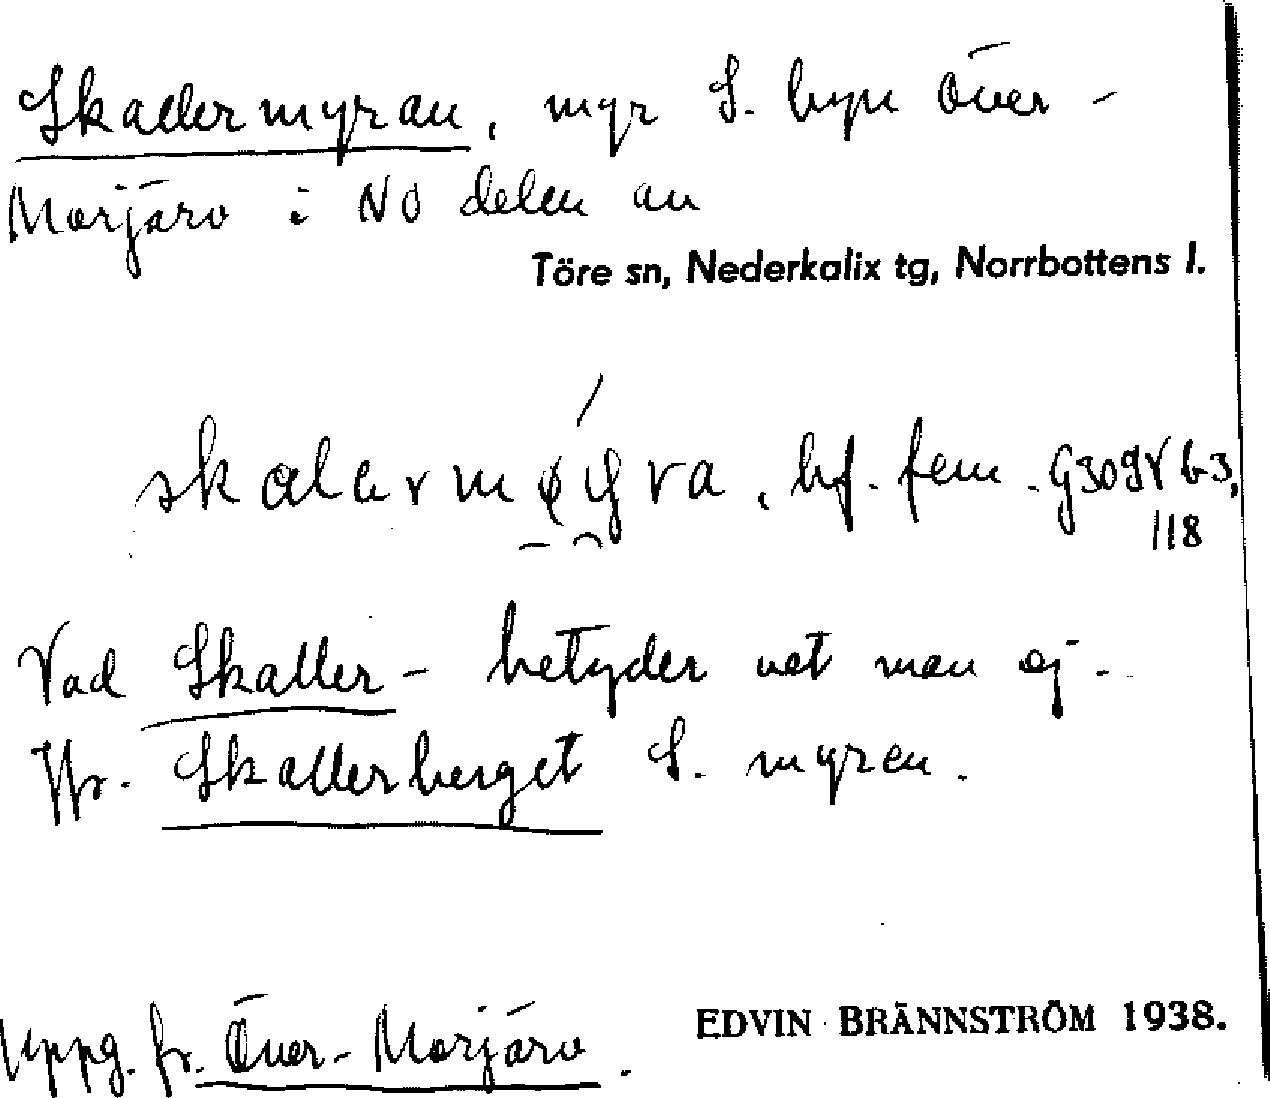 Skallermyran, myr S. byn Över-
Morjärv i NO delen av
Töre sn, Nederkalix tg, Norrbottens l.
skalermøyra, bf. fem. G309Vb3,
118
Vad Skaller- betyder vet man ej.
Jfr. Skallerberget S. myren.
Uppg. fr. Över-Morjärv.
EDVIN BRÄNNSTRÖM 1938.